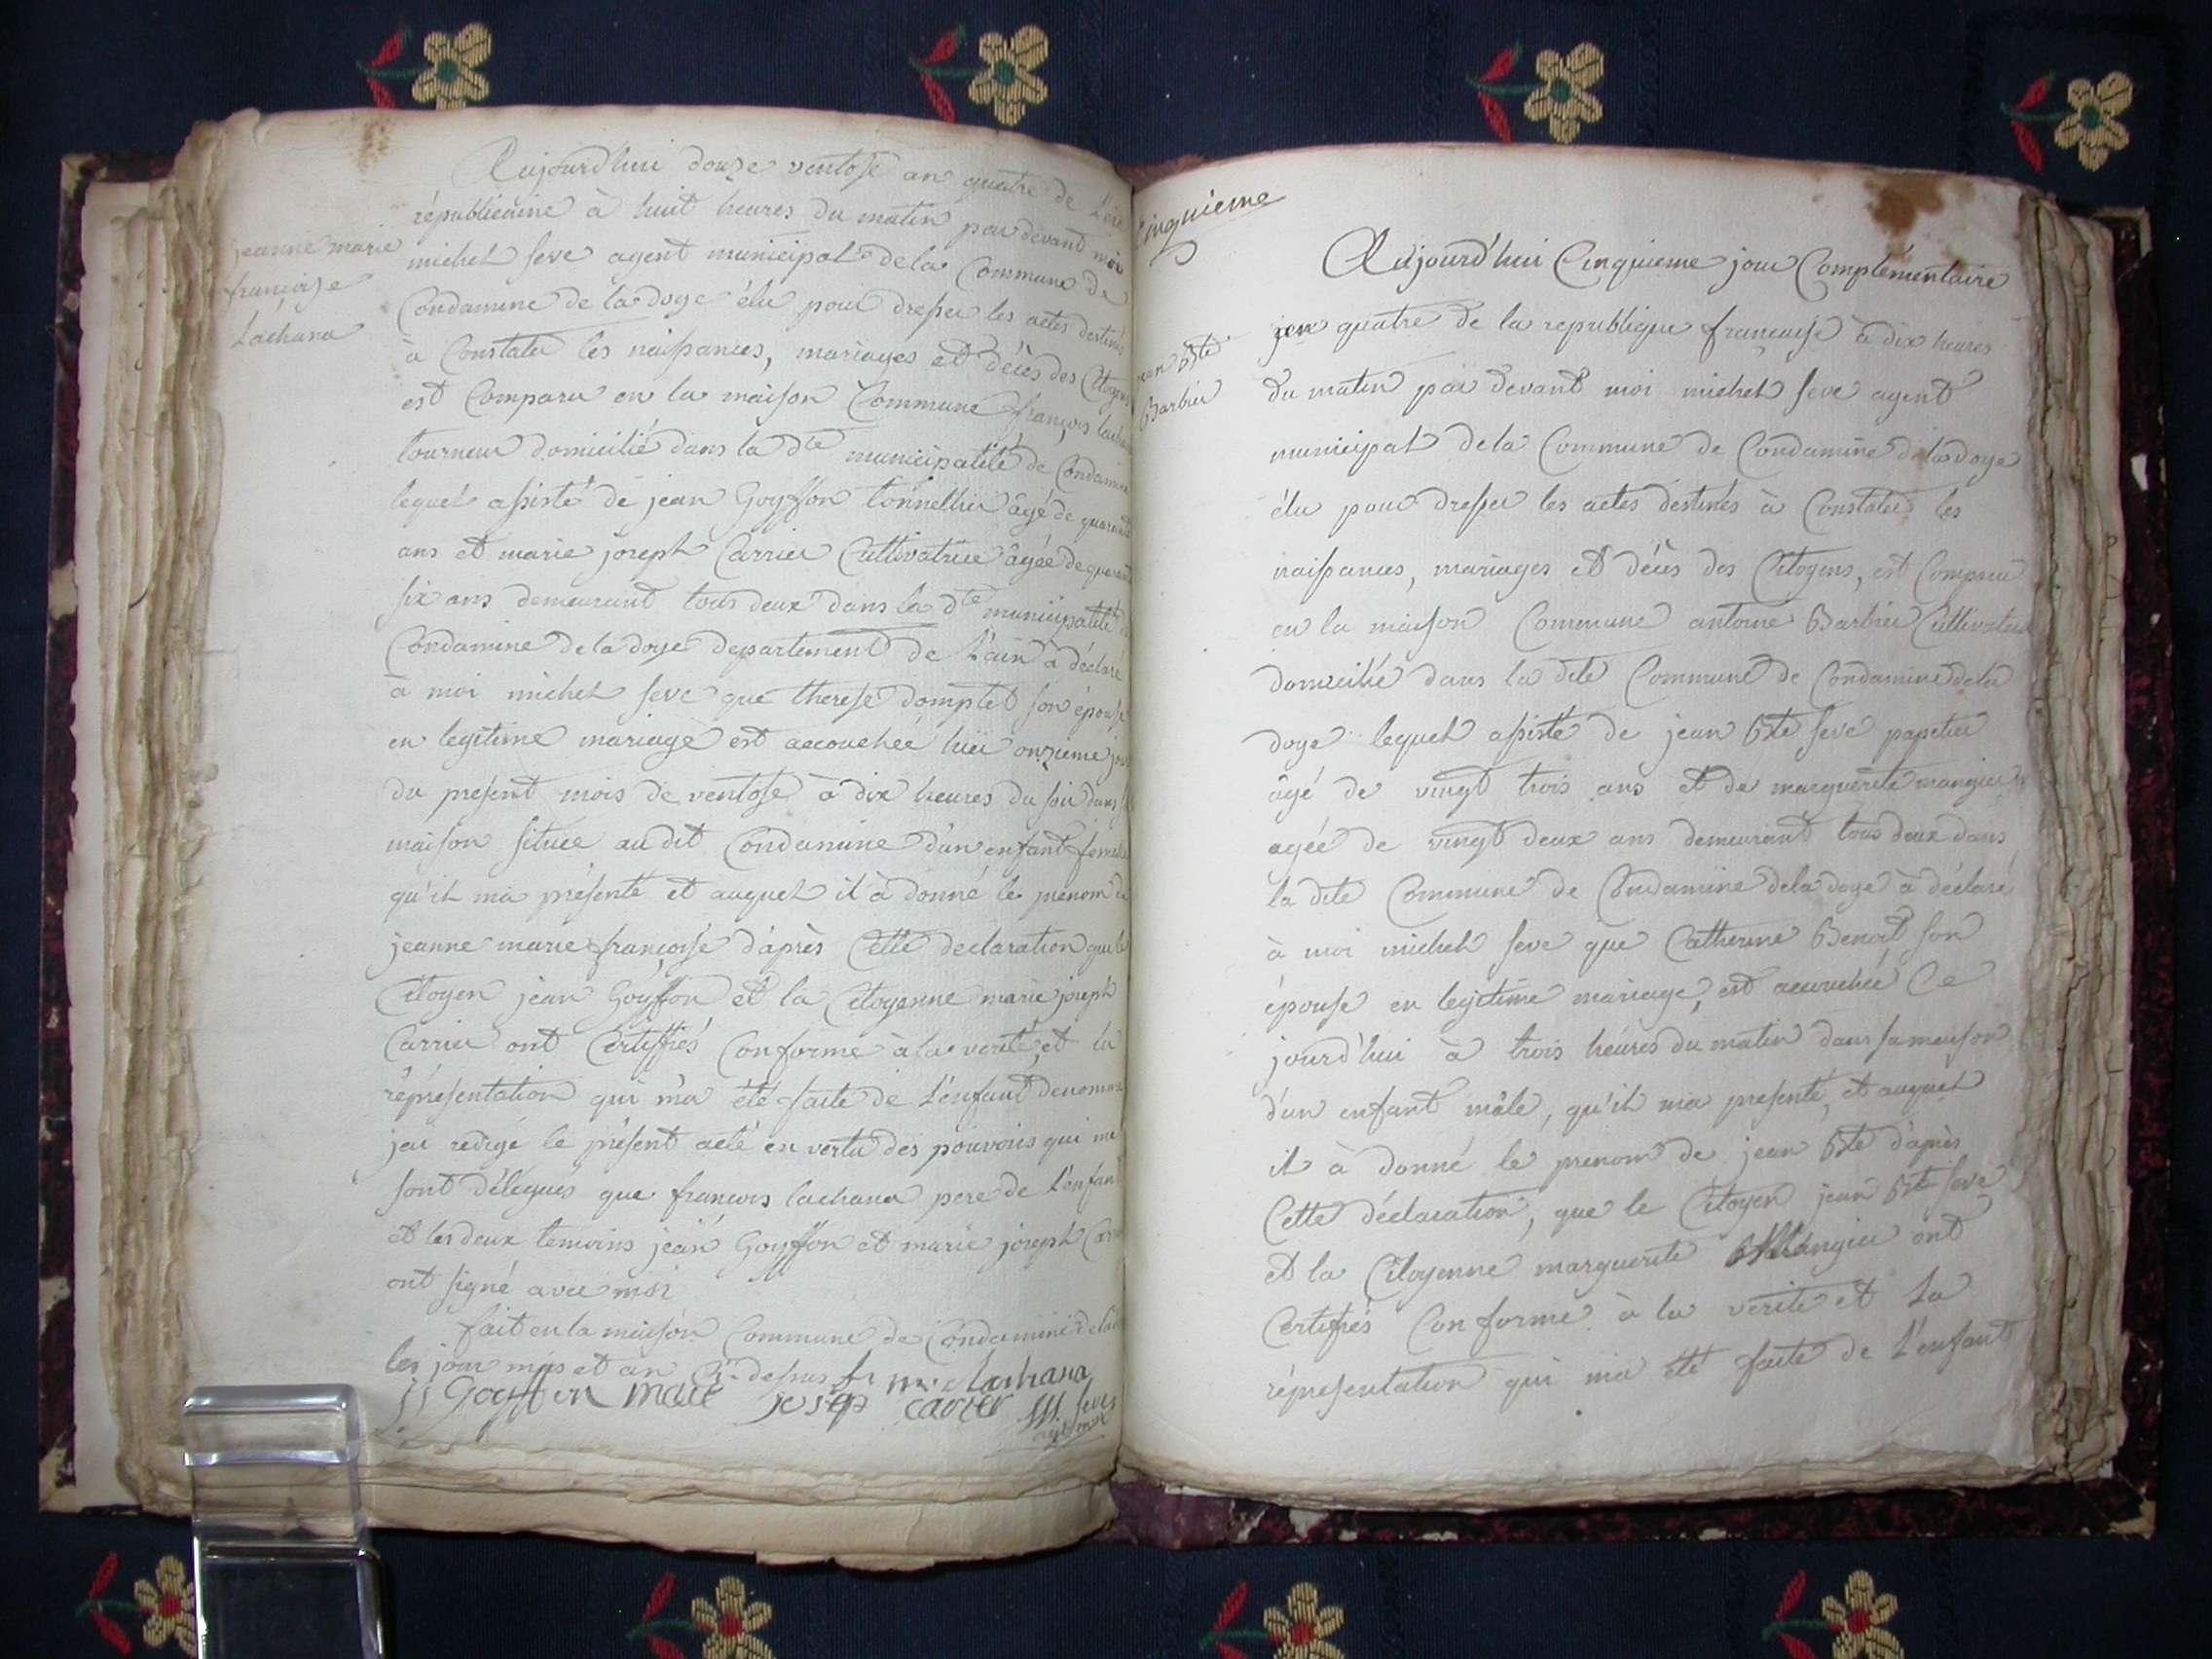 Aujourd'hui douze ventose an quatre de L'ere
républicaine à huit heures du matin par devant moi
michel seve agent municipal de la Commune de
Condamine de la doye élu pour dresser les actes destinés
à Constater les naissances, mariages et décès des Citoyens
est Comparu en la maison Commune françois lachana
tourneur domicilié dans la dte municipalité de Condamine
lequel assisté de jean Goyffon tonnellier âgé de quarante
ans et marie joseph Carrier Cultivatrice âgée de quarante
six ans demeurant tous deux dans la dte municipalité de
Condamine de la doye departement de L'ain à déclaré
à moi michel seve que therese domplet son épouse
en legitime mariage est accouchée hier onzieme jour
du present mois de ventose à dix heures du soir dans sa
maison située au dit Condamine d'un enfant femelle
qu'il ma présenté et auquel il à donné le prenom de
jeanne marie françoise d'après Cette declaration que le
Citoyen jean Goyffon et la Citoyenne marie joseph
Carrier ont Certiffiés Conforme à la verité, et la
répresentation qui m'a été faite de L'enfant denommé
jai redigé le présent acte en vertu des pouvoirs qui me
sont délégués que francois lachana pere de L'enfant
et les deux temoins jean Goyffon et marie joseph Carrier
ont signé avec moi
fait en la maison Commune de Condamine de la
les jour mois et an Ci-dessus fr m. lachana
jj Goyffon marie josep carier M. seve
agt m
jeanne marie
françoise
Lachana
Cinquieme
jean Bte
Barbier
Aujourd'hui Cinquieme jour Complémentaire
an quatre de la republique française à dix heures
du matin par devant moi michel seve agent
municipal de la Commune de Condamine de la doye
élu pour dresser les actes destinés à Constater les
naissances, mariages et décès des Citoyens, est Comparu
en la maison Commune antoine Barbier Cultivateur
domicilié dans la dite Commune de Condamine de la
doye lequel assisté de jean Bte seve papetier
âgé de vingt trois ans et de marguerite mangier
agée de vingt deux ans demeurant tous deux dans
la dite Commune de Condamine de la doye à déclaré
à moi michel seve que Catherine Benoit son
épouse en legitime mariage, est accouchée Ce
jourd'hui à trois heures du matin dans sa maison
d'un enfant mâle, qu'il ma presenté, et auquel
il à donné le prenom de jean Bte d'après
Cette déclaration, que le Citoyen jean Bte seve
et la Citoyenne marguerite Mangier ont
Certifiés Conforme à la verité et La
répresentation qui ma été faite de L'enfant